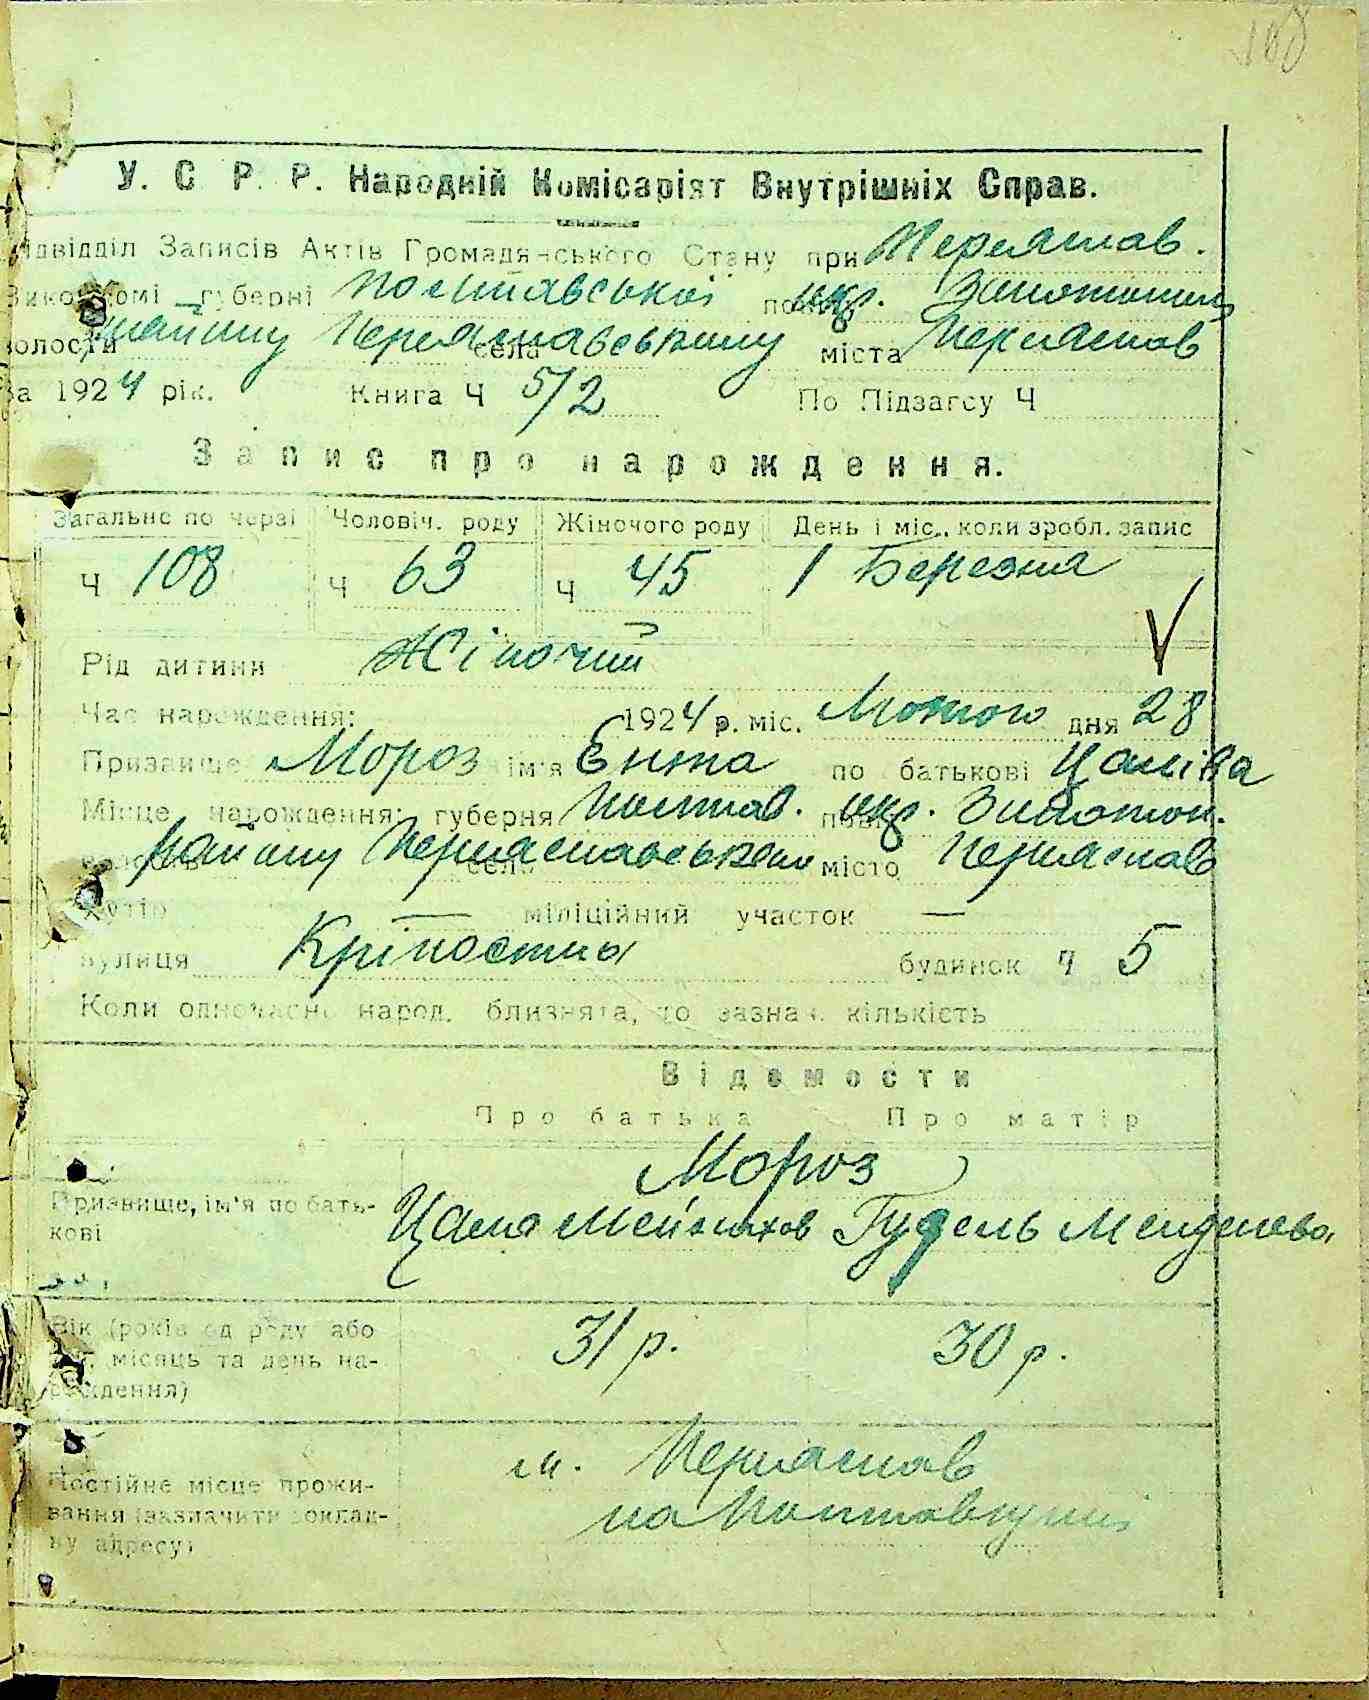 108
У. С Р. Р. Народній Комісаріят Внутрішніх Справ.
Підвідділ Записів Актів Громадянського Стану при Переяслав.
Виконкомі губерні Полтавської повіту окр. Золотоніськ
волости району Переяславському села міста Переяслав
За 1924 рік. Книга Ч 5/2 По Підзагсу Ч
Запис про нарождення.
Загальне по черзі Чоловіч. роду Жіночого роду День і міс., коли зробл. запис
Ч 108 Ч 63 Ч 45 1 Березня
Рід дитини Жіночий
Час нарождення: 1924 р. міс. Лютого дня 28
Призвище Мороз ім'я Єнта по батькові Цаліва
Місце нарождення: губерня Полтав. повіт окр. Золотон.
волость району Переяславського село місто Переяслав
Хутір — міліційний участок —
вулиця Кріпостна будинок ч 5
Коли одночасно народ. близнята, то зазнач. кількість
Відомости
Про батька Про матір
Мороз
Призвище, ім'я по бать-
кові
Цаля Гудель Менделева
Вік (років од роду або
рік, місяць та день на-
рождення)
31 р. 30 р.
Постійне місце прожи-
вання (зазначити доклад-
ну адресу)
м. Переяслав
на Полтавщині